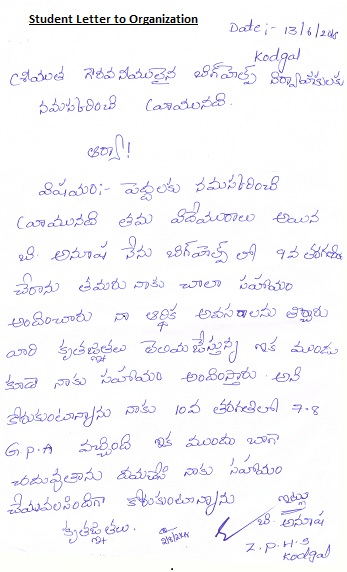 Student Letter to Organization
Date;- 13/6/2015
Kodgal
శ్రీయుత గౌరవనీయులైన బిగ్‌హెల్ప్ నిర్వాహకులకు
నమస్కరించి వ్రాయునది.
ఆర్యా!
విషయం;- పెద్దలకు నమస్కరించి
వ్రాయునది తమ విధేయురాలు అయిన
బి. అనూష నేను బిగ్‌హెల్ప్ లో 9వ తరగతి
చేరాను తమరు నాకు చాలా సహాయం
అందించారు నా ఆర్థిక అవసరాలను తీర్చారు
వారి కృతజ్ఞతలు తెలియజేస్తున్న ఇక ముందు
కూడా నాకు సహాయం అందిస్తారు అని
కోరుకుంటున్నాను నాకు 10వ తరగతిలో 7.8
G.P.A వచ్చింది ఇక ముందు బాగా
చదువుతాను దయచేసి నాకు సహాయం
చేయవలసిందిగా కోరుకుంటున్నాను
కృతజ్ఞతలు.
ఇట్లు
బి. అనూష
Z.P.H.S
Kodgal